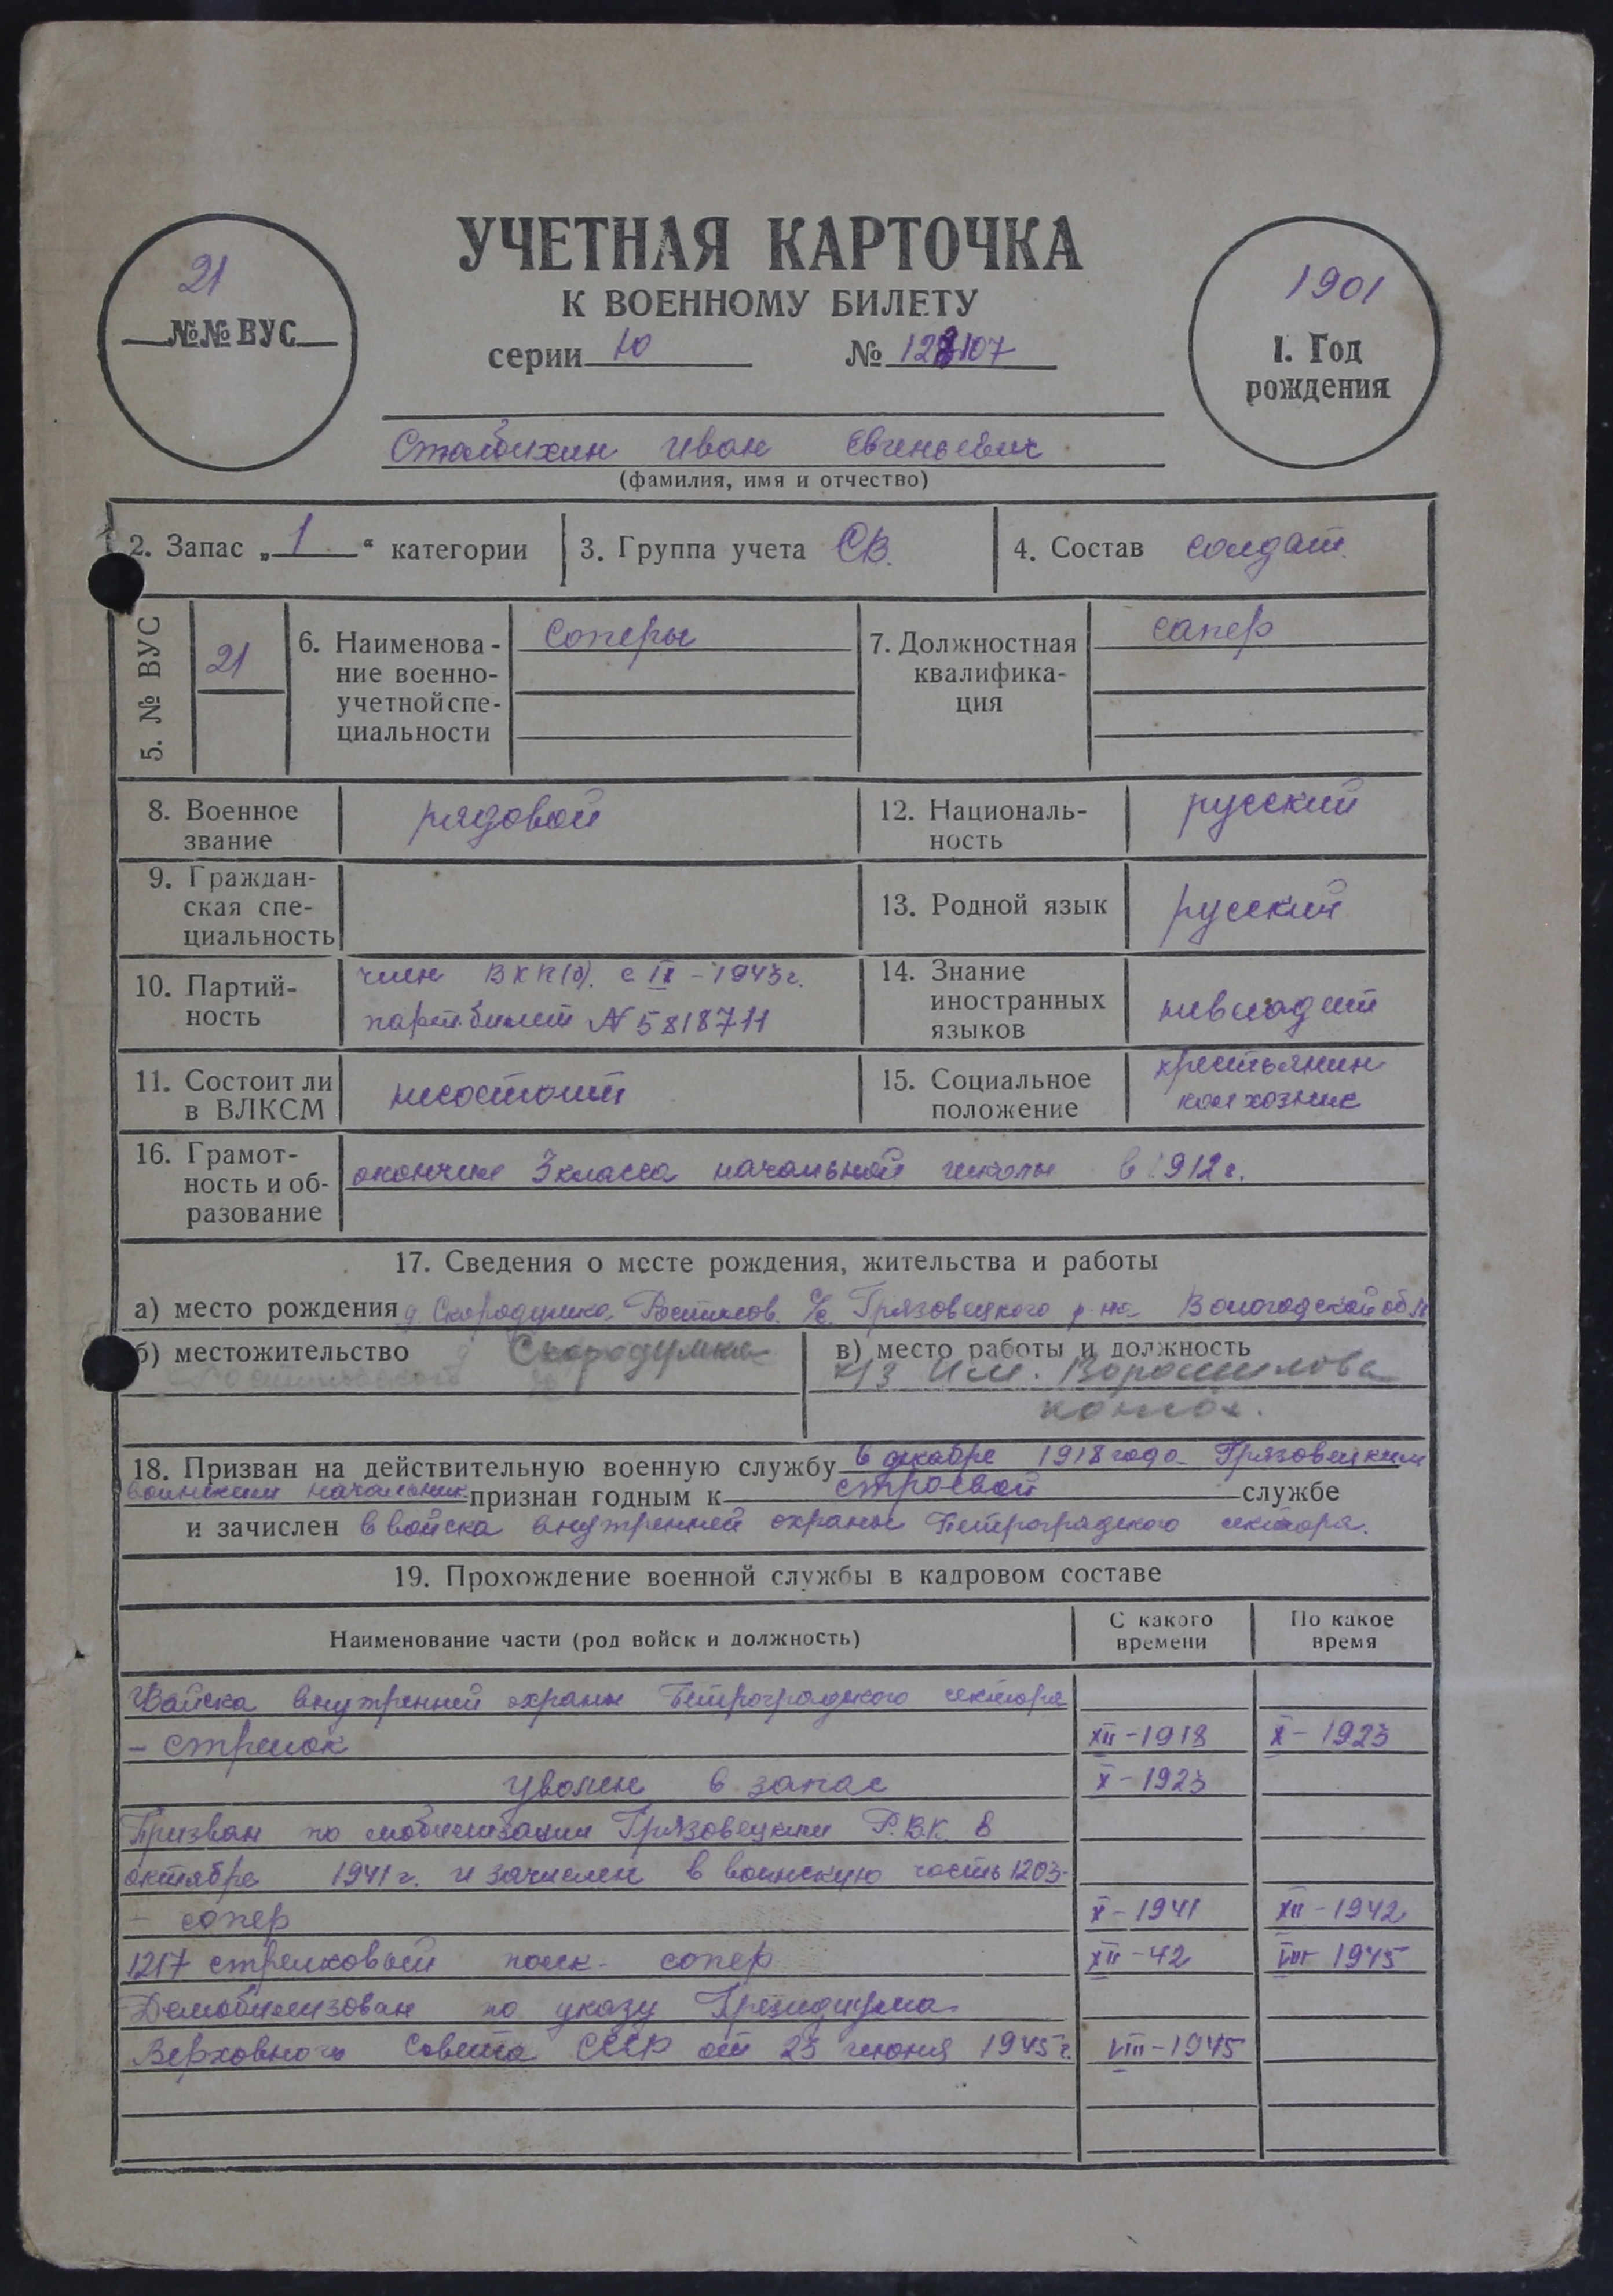 УЧЕТНАЯ КАРТОЧКА
К ВОЕННОМУ БИЛЕТУ
серии Ю № 107
21
№№ ВУС
1901
1. Год
рождения
Иван Евгеньевич
(фамилия, имя и отчество)
2. Запас „1“ категории
3. Группа учета СВ.
4. Состав солдат.
5. № ВУС
21
6. Наименова-
ние военно-
учетной спе-
циальности
соперы
7. Должностная
квалифика-
ция
сапер
8. Военное
звание
рядовой
12. Националь-
ность
русский
9. Граждан-
ская спе-
циальность
13. Родной язык
русский
10. Партий-
ность
член ВКП(б). с IX - 1943 г.
парт.билет № 5818711
14. Знание
иностранных
языков
невладеет
11. Состоит ли
в ВЛКСМ
несостоит
15. Социальное
положение
крестьянин
колхозник
16. Грамот-
ность и об-
разование
окончил 3 класса начальной школы в 1912 г.
17. Сведения о месте рождения, жительства и работы
а) место рождения д. Скородумка Ростилов. с/с Грязовецкого р-на Вологодской обл
б) местожительство д Скородумка
в) место работы и должность
к/з Им. Ворошилова
колхоз.
18. Призван на действительную военную службу в декабре 1918 года Грязовецким
воинским начальник признан годным к строевой службе
и зачислен в войска внутренней охраны Петроградского сектора.
19. Прохождение военной службы в кадровом составе
Наименование части (род войск и должность)
С какого
времени
По какое
время
Войска внутренней охраны Петроградского сектора
- стрелок XII - 1918 X - 1923
уволен в запас X - 1923
Призван по мобилизации Грязовецким Р.В.К. в
октябре 1941 г. и зачислен в воинскую часть 1203-
- сопер X - 1941 XII - 1942
1217 стрелковый полк - сопер XII - 42 VIII 1945
Демобилизован по указу Президиума
Верховного Совета СССР от 23 июня 1945 г. VIII - 1945